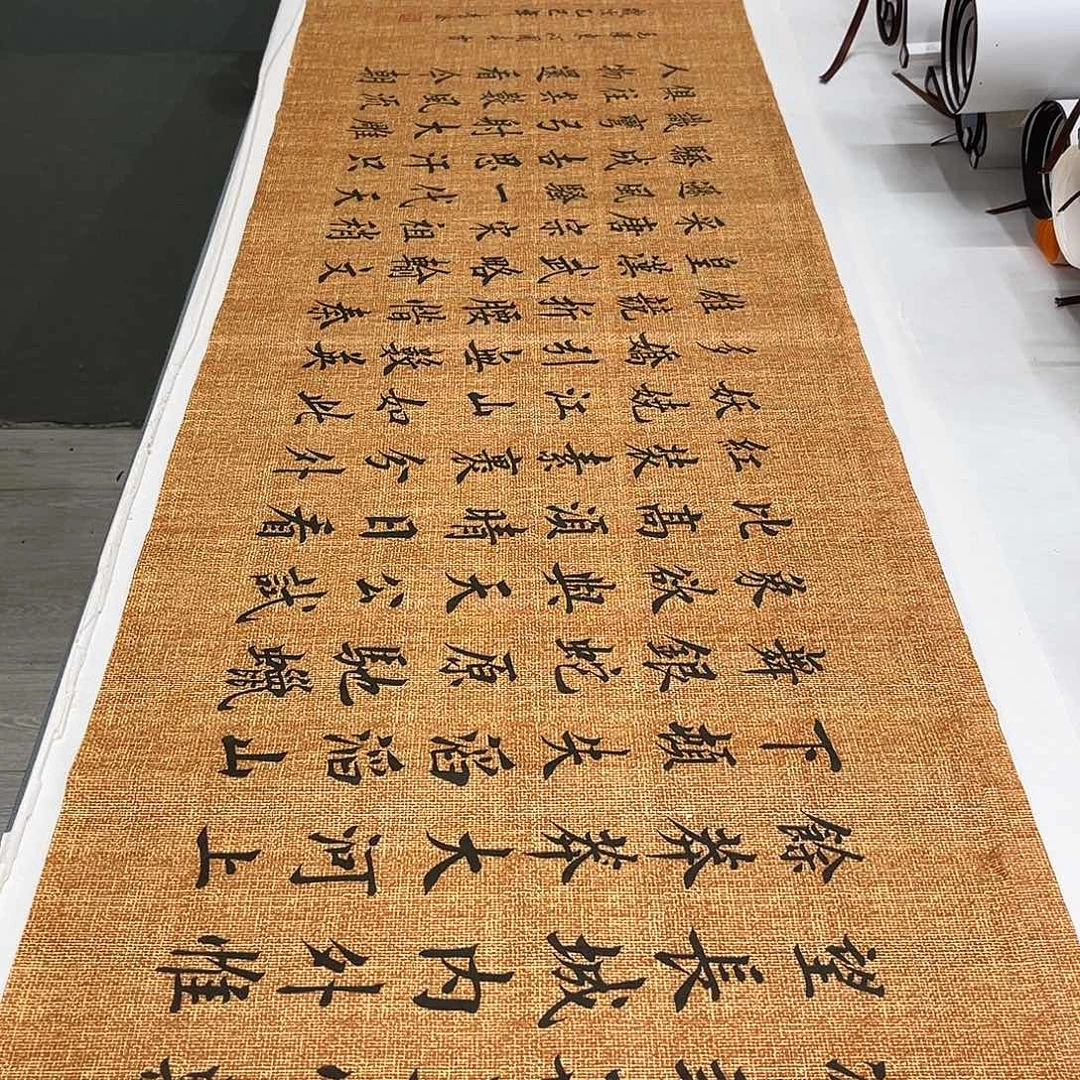 望長城内外惟
餘莽莽大河上
下頓失滔滔山
舞銀蛇原馳蠟
象欲與天公試
比高須晴日看
紅裝素裹分外
妖嬈江山如此
多嬌引無數英
雄競折腰惜秦
皇漢武略輸文
采唐宗宋祖稍
遜風騷一代天
驕成吉思汗只
識彎弓射大雕
俱往矣數風流
人物還看今朝